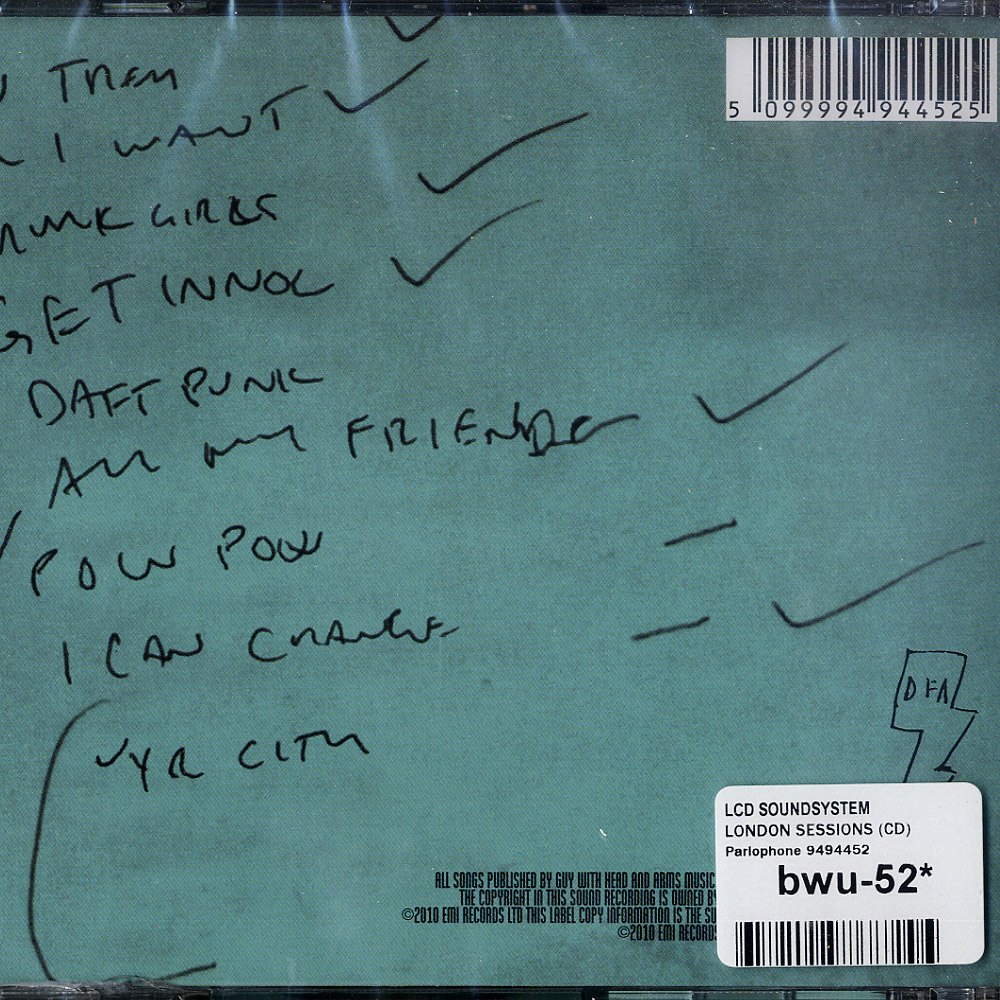 THEM
I WANT
5 099994 944525
GIRLS
GET INNOC
DAFT PUNK
ALL MY FRIENDS
POW POW
I CAN CHANGE
YR CITY
DFA
LCD SOUNDSYSTEM
LONDON SESSIONS (CD)
Parlophone 9494452
bwu-52*
ALL SONGS PUBLISHED BY GUY WITH HEAD AND ARMS MUSIC
THE COPYRIGHT IN THIS SOUND RECORDING IS OWNED BY
©2010 EMI RECORDS LTD THIS LABEL COPY INFORMATION IS THE SU
©2010 EMI RECORDS